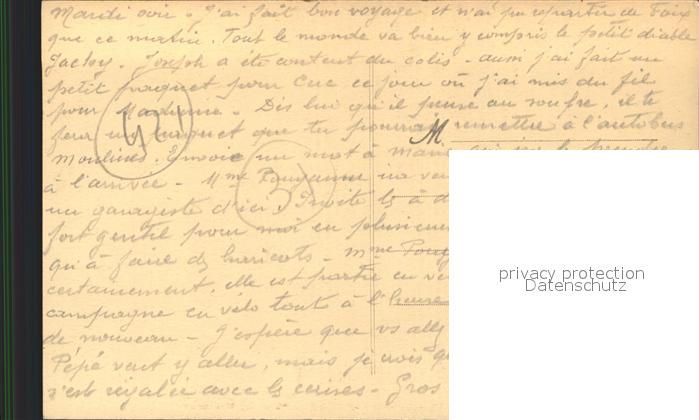 Mardi soir. J'ai fait bon voyage et n'ai pu repartir de Foix
que ce matin. Tout le monde va bien y compris le petit diable
Jacky. Joseph a été content du colis - aussi j'ai fait un
petit paquet pour ce jour où j'ai mis du fil
pour Maximie. Dis lui qu'il pense au soufre, il te
fera un paquet que tu pourrais remettre à l'autobus
M
Moulines. Envoie un mot à
à l'arrivée - Mme
un garagiste d'ici. Invite ls à d
fort gentil pour moi en plusieurs
qu'à faire ds haricots - Mme
certainement, elle est partie en
campagne en vélo tout à l'heure
de nouveau - J'espère que vs all
Pépé veut y aller, mais je crois q
s'est régalée avec ls cerises - Gros
privacy protection
Datenschutz